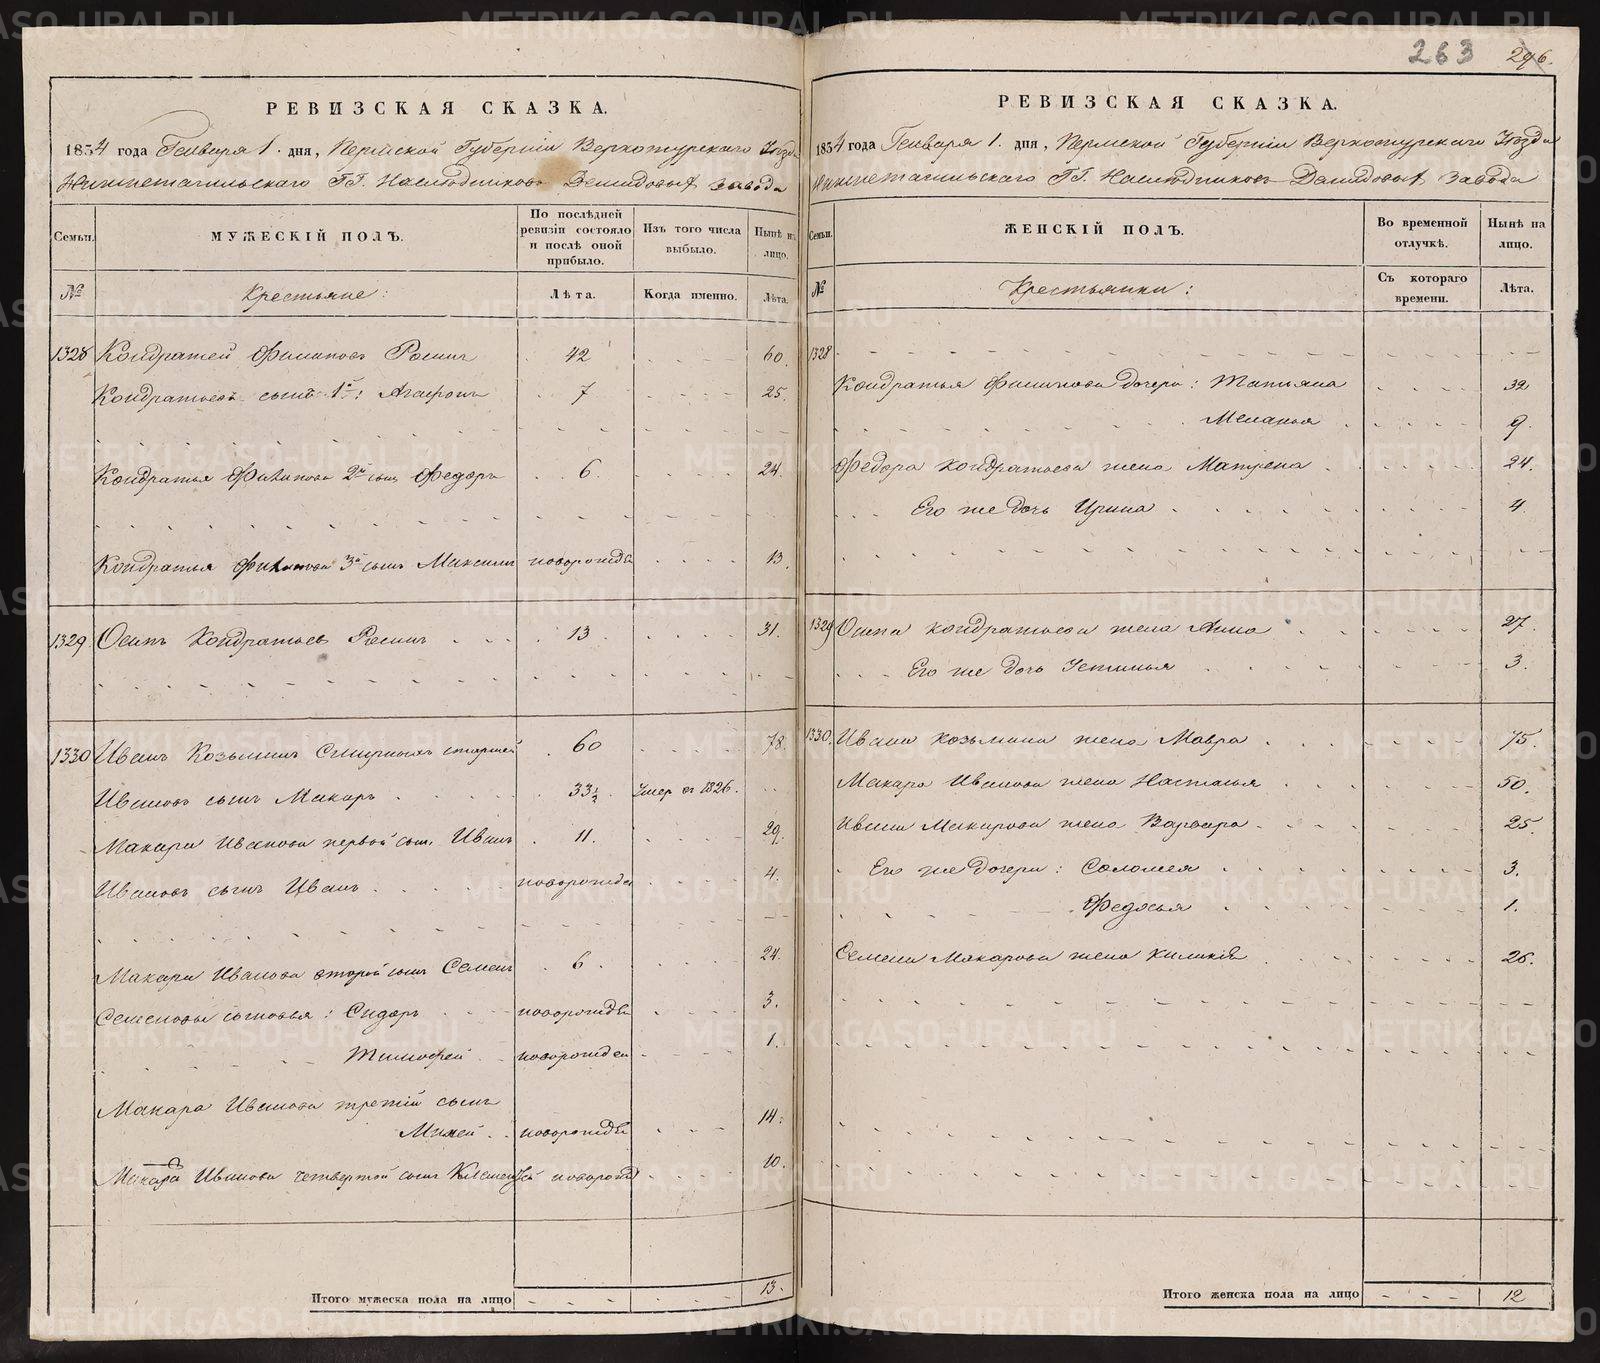 263 296.
РЕВИЗСКАЯ СКАЗКА.
1834 года Генваря 1. дня, Пермской Губерніи Верхотурскаго Уѣзда
Нижнетагильскаго ГГ. Наслѣдниковъ Демидовыхъ завода
Семьи. МУЖЕСКІЙ ПОЛЪ. По послѣдней ревизіи состояло и послѣ оной прибыло. Изъ того числа выбыло. Нынѣ на лицо.
№ Крестьяне: Лѣта. Когда именно. Лѣта.
1328 Кондратей Филиповъ Росинъ 42 60.
Кондратьевъ сынъ 1й: Агафонъ 7 25.
Кондратья Филипова 2й сынъ Федоръ 6. 24.
Кондратья Филипова 3й сынъ Максимъ новорожде 13.
1329. Осипъ Кондратьевъ Росинъ 13. 31.
1330 Иванъ Козьминъ старшей 60 78.
Ивановъ сынъ Макаръ 33½. Умер въ 1826.
Макара Иванова первой сынъ Иванъ 11. 29.
Ивановъ сынъ Иванъ новорожде 4.
Макара Иванова второй сынъ Семенъ 6. 24.
Семеновы сыновья: Сидоръ новорожде 3.
Тимофей новорожден 1.
Макара Иванова третій сынъ
Миней новорожде 14.
Макара Иванова четвертой сынъ Климентей новорожд 10.
Итого мужеска пола на лицо 13.
РЕВИЗСКАЯ СКАЗКА.
1834 года Генваря 1. дня, Пермской Губерніи Верхотурскаго Уѣзда
Нижнетагильскаго ГГ. Наслѣдниковъ Демидовыхъ завода
Семьи. ЖЕНСКІЙ ПОЛЪ. Во временной отлучкѣ. Нынѣ на лицо.
№ Крестьянки: Съ котораго времени. Лѣта.
1328
Кондратья Филипова дочери: Татьяна 32
Меланья 9.
Федора Кондратьева жена Матрена 24.
Его же дочь Ирина 4.
1329 Осипа Кондратьева жена Анна 27.
Его же дочь Устинья 3.
1330. Ивана Козьмина жена Мавра 75.
Макара Иванова жена Настасья 50.
Ивана Макарова жена Варвара 25.
Его же дочери: Соломея 3.
Федосья 1.
Семена Макарова жена 26.
Итого женска пола на лицо 12
METRIKI.GASO-URAL.RU